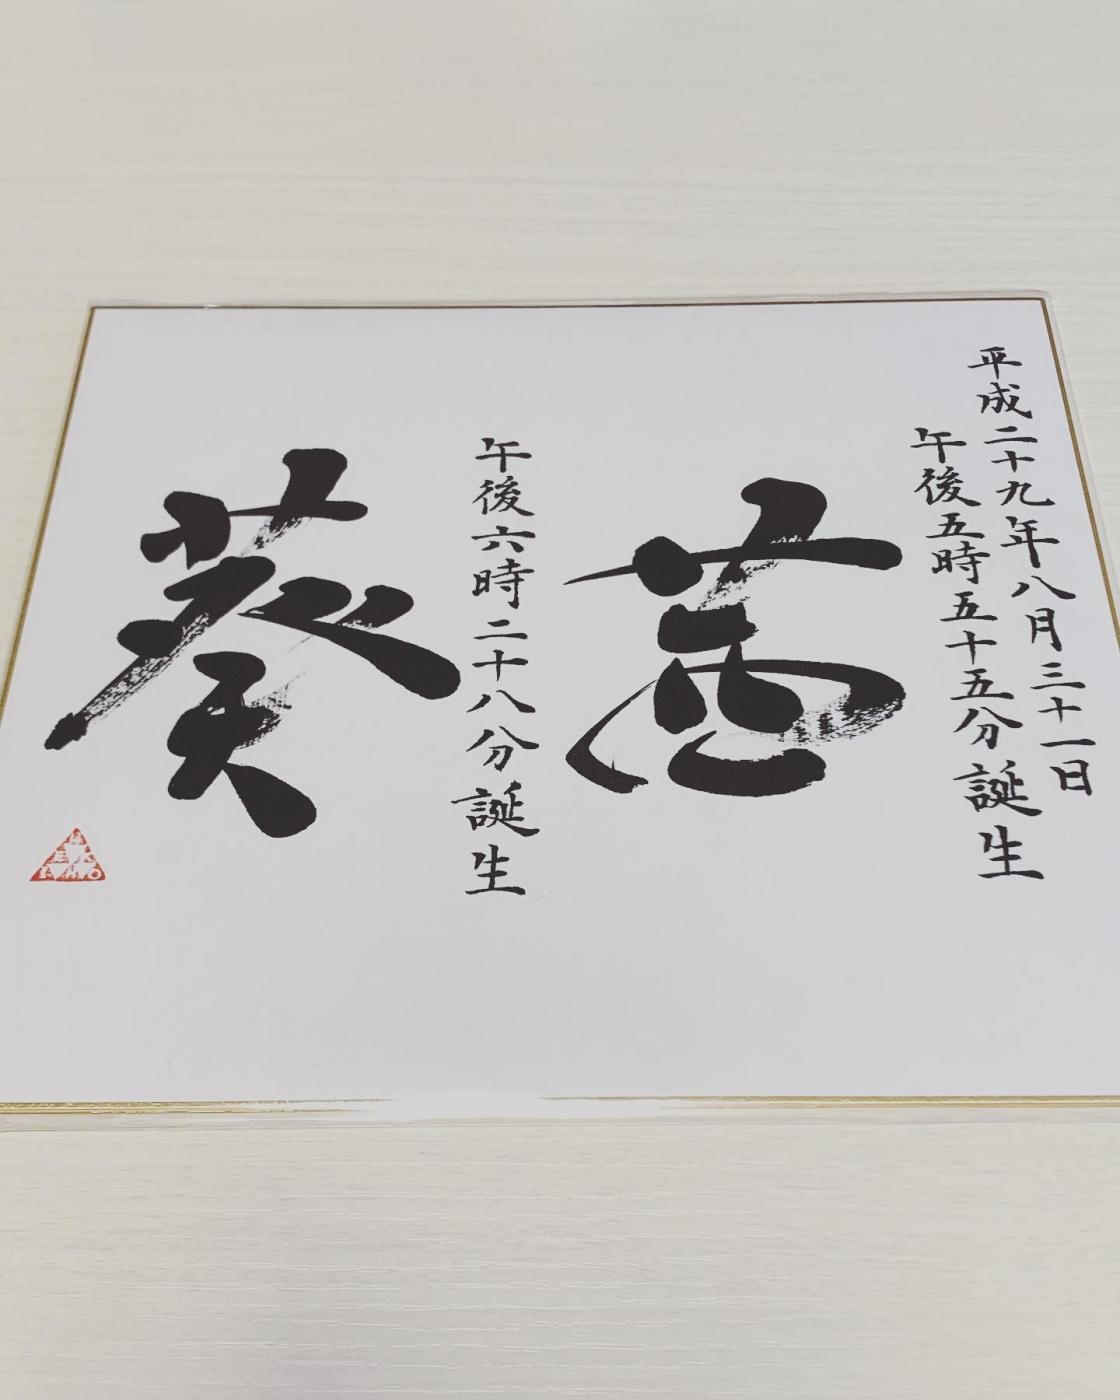 平成二十九年八月三十一日
午後五時五十五分誕生
茜
午後六時二十八分誕生
葵